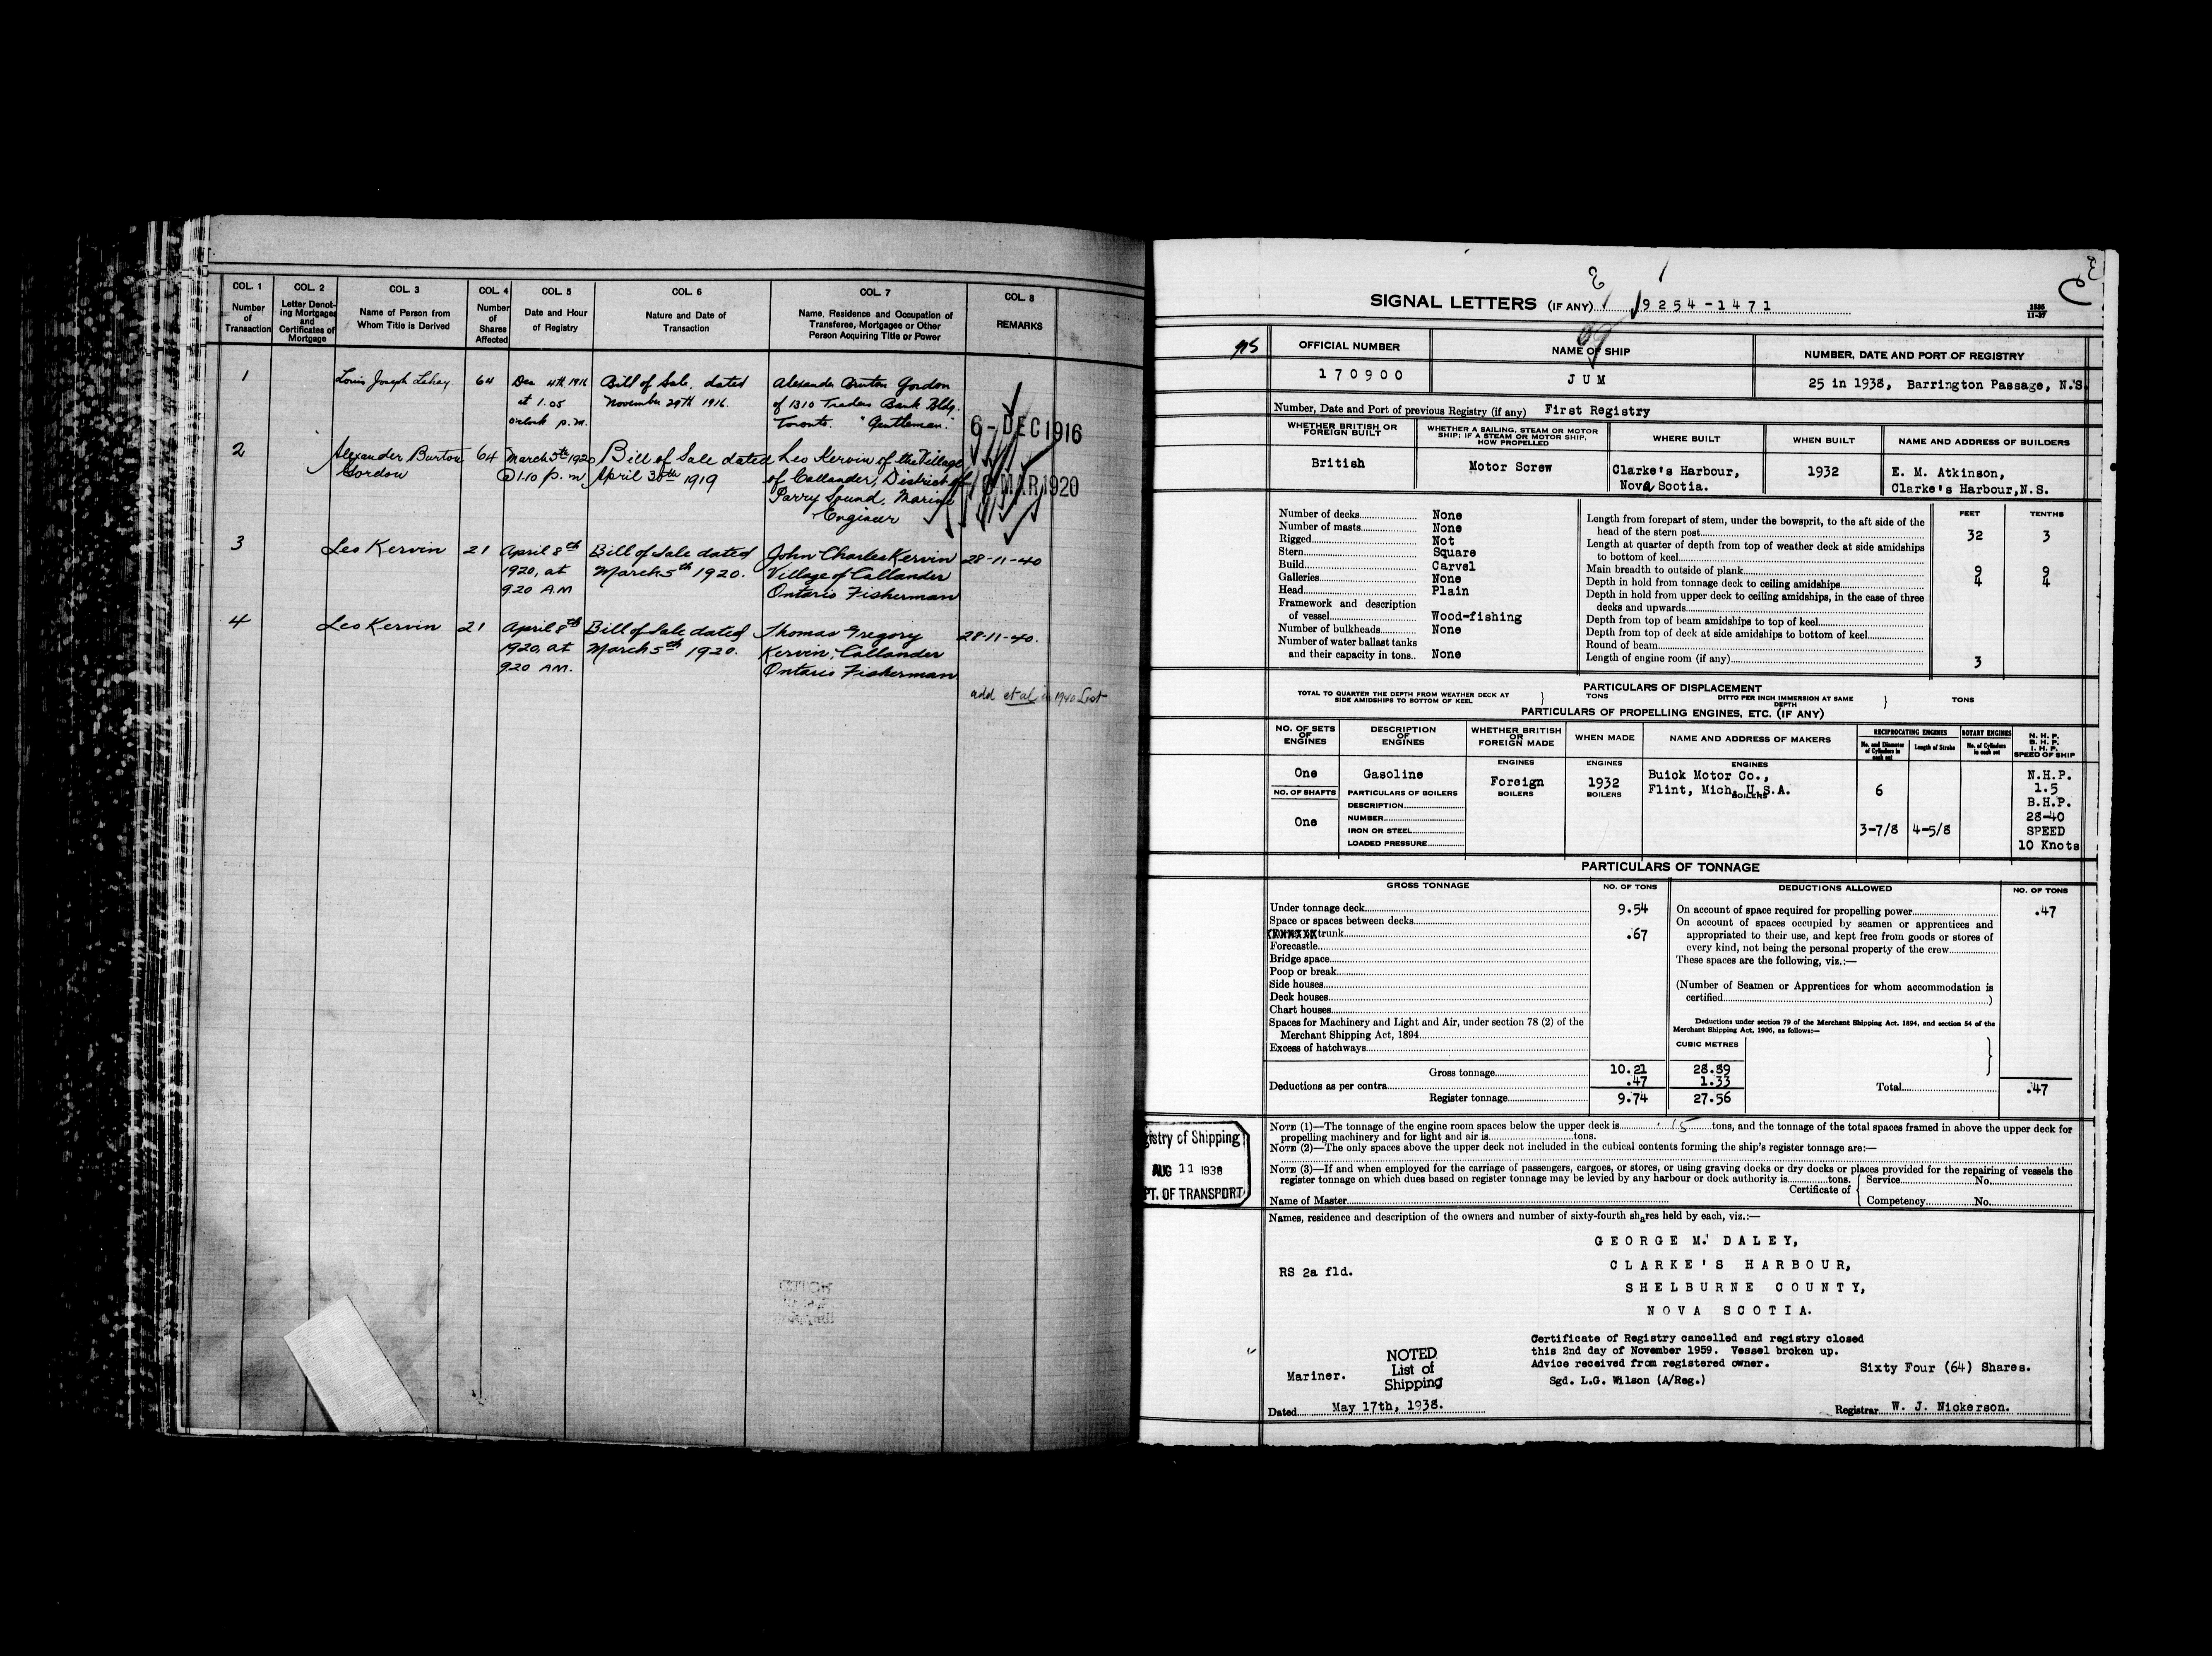 COL. 1
COL. 2
COL. 3
COL. 4
COL. 5
COL. 6
COL. 7
COL. 8
Number
of
Transaction
Letter Denot-
ing Mortgages
and
Certificates of
Mortgage
Name of Person from
Whom Title is Derived
Number
of
Shares
Affected
Date and Hour
of Registry
Nature and Date of
Transaction
Name, Residence and Occupation of
Transferee, Mortgagee or Other
Person Acquiring Title or Power
REMARKS
1
Louis Joseph Lehay
64
Dec 4th 1916
at 1.05
o'clock p.m.
Bill of Sale, dated
November 29th 1916.
Alexander Bruton Gordon
of 1310 Traders Bank Bldg.
Toronto. "Gentleman."
6 - DEC 1916
2
Alexander Burton
Gordon
64
March 5th 1920
@ 1.10 p.m
Bill of Sale dated
April 30th 1919
Leo Kervin of the Village
of Callander, District of
Parry Sound, Marine
Engineer
MAR 1920
3
Leo Kervin
21
April 8th
1920, at
9.20 A.M
Bill of Sale dated
March 5th 1920.
John Charles Kervin
Village of Callander
Ontario Fisherman
28-11-40
4
Leo Kervin
21
April 8th
1920, at
9.20 A.M.
Bill of Sale dated
March 5th 1920.
Thomas Gregory
Kervin, Callander
Ontario Fisherman
28-11-40.
add et al in 1940 List
SIGNAL LETTERS (IF ANY) 9254-1471
1536
11-37
NS
OFFICIAL NUMBER
NAME OF SHIP
NUMBER, DATE AND PORT OF REGISTRY
170900
JUM
25 in 1938, Barrington Passage, N.S.
Number, Date and Port of previous Registry (if any) First Registry
WHETHER BRITISH OR
FOREIGN BUILT
WHETHER A SAILING, STEAM OR MOTOR
SHIP; IF A STEAM OR MOTOR SHIP,
HOW PROPELLED
WHERE BUILT
WHEN BUILT
NAME AND ADDRESS OF BUILDERS
British
Motor Screw
Clarke's Harbour,
Nova Scotia.
1932
E. M. Atkinson,
Clarke's Harbour,N.S.
Number of decks None
Number of masts None
Rigged Not
Stern Square
Build Carvel
Galleries None
Head Plain
Framework and description
of vessel Wood-fishing
Number of bulkheads None
Number of water ballast tanks
and their capacity in tons.. None
FEET
TENTHS
Length from forepart of stem, under the bowsprit, to the aft side of the
head of the stern post 32 3
Length at quarter of depth from top of weather deck at side amidships
to bottom of keel
Main breadth to outside of plank 9 9
Depth in hold from tonnage deck to ceiling amidships 4 4
Depth in hold from upper deck to ceiling amidships, in the case of three
decks and upwards
Depth from top of beam amidships to top of keel
Depth from top of deck at side amidships to bottom of keel
Round of beam
Length of engine room (if any) 3
PARTICULARS OF DISPLACEMENT
TOTAL TO QUARTER THE DEPTH FROM WEATHER DECK AT
SIDE AMIDSHIPS TO BOTTOM OF KEEL
TONS
DITTO PER INCH IMMERSION AT SAME
DEPTH
TONS
PARTICULARS OF PROPELLING ENGINES, ETC. (IF ANY)
NO. OF SETS
OF
ENGINES
DESCRIPTION
OF
ENGINES
WHETHER BRITISH
OR
FOREIGN MADE
WHEN MADE
NAME AND ADDRESS OF MAKERS
RECIPROCATING ENGINES
ROTARY ENGINES
No. and Diameter
of Cylinders in
each set
Length of Stroke
No. of Cylinders
in each set
N. H. P.
B. H. P.
I. H. P.
SPEED OF SHIP
ENGINES
ENGINES
ENGINES
One
Gasoline
Foreign
1932
Buick Motor Co.,
Flint, Mich. U.S.A.
6
N.H.P.
1.5
B.H.P.
28-40
SPEED
10 Knots
NO. OF SHAFTS
One
PARTICULARS OF BOILERS
BOILERS
BOILERS
BOILERS
DESCRIPTION
NUMBER
IRON OR STEEL
LOADED PRESSURE
3-7/8
4-5/8
PARTICULARS OF TONNAGE
GROSS TONNAGE
NO. OF TONS
DEDUCTIONS ALLOWED
NO. OF TONS
Under tonnage deck 9.54
Space or spaces between decks
trunk .67
Forecastle
Bridge space
Poop or break
Side houses
Deck houses
Chart houses
Spaces for Machinery and Light and Air, under section 78 (2) of the
Merchant Shipping Act, 1894
Excess of hatchways
On account of space required for propelling power .47
On account of spaces occupied by seamen or apprentices and
appropriated to their use, and kept free from goods or stores of
every kind, not being the personal property of the crew
These spaces are the following, viz.:—
(Number of Seamen or Apprentices for whom accommodation is
certified )
Deductions under section 79 of the Merchant Shipping Act. 1894, and section 54 of the
Merchant Shipping Act, 1906, as follows:—
CUBIC METRES
Gross tonnage 10.21 28.89
Deductions as per contra .47 1.33
Register tonnage 9.74 27.56
Total .47
NOTE (1)—The tonnage of the engine room spaces below the upper deck is .15 tons, and the tonnage of the total spaces framed in above the upper deck for
propelling machinery and for light and air is tons.
NOTE (2)—The only spaces above the upper deck not included in the cubical contents forming the ship's register tonnage are:—
NOTE (3)—If and when employed for the carriage of passengers, cargoes, or stores, or using graving docks or dry docks or places provided for the repairing of vessels the
register tonnage on which dues based on register tonnage may be levied by any harbour or dock authority is tons.
Name of Master
Certificate of
Service No.
Competency No.
gistry of Shipping
AUG 11 1938
PT. OF TRANSPORT
Names, residence and description of the owners and number of sixty-fourth shares held by each, viz.:—
GEORGE M. DALEY,
CLARKE'S HARBOUR,
SHELBURNE COUNTY,
NOVA SCOTIA.
RS 2a fld.
Certificate of Registry cancelled and registry closed
this 2nd day of November 1959. Vessel broken up.
Advice received from registered owner.
Sgd. L.G. Wilson (A/Reg.)
Mariner.
NOTED
List of
Shipping
Sixty Four (64) Shares.
Dated May 17th, 1938.
Registrar W. J. Nickerson.